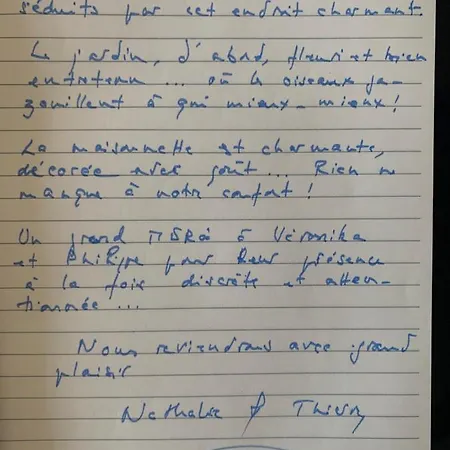 séduits par cet endroit charmant.
Le jardin, d'abord, fleuri et bien
entretenu ... où les oiseaux ga-
zouillent à qui mieux-mieux !
La maisonnette est charmante,
décorée avec goût ... Rien ne
manque à notre confort !
Un grand MERCI à Véronika
et Philippe pour leur présence
à la fois discrète et atten-
tionnée ...
Nous reviendrons avec grand
plaisir
Nathalie & Thierry